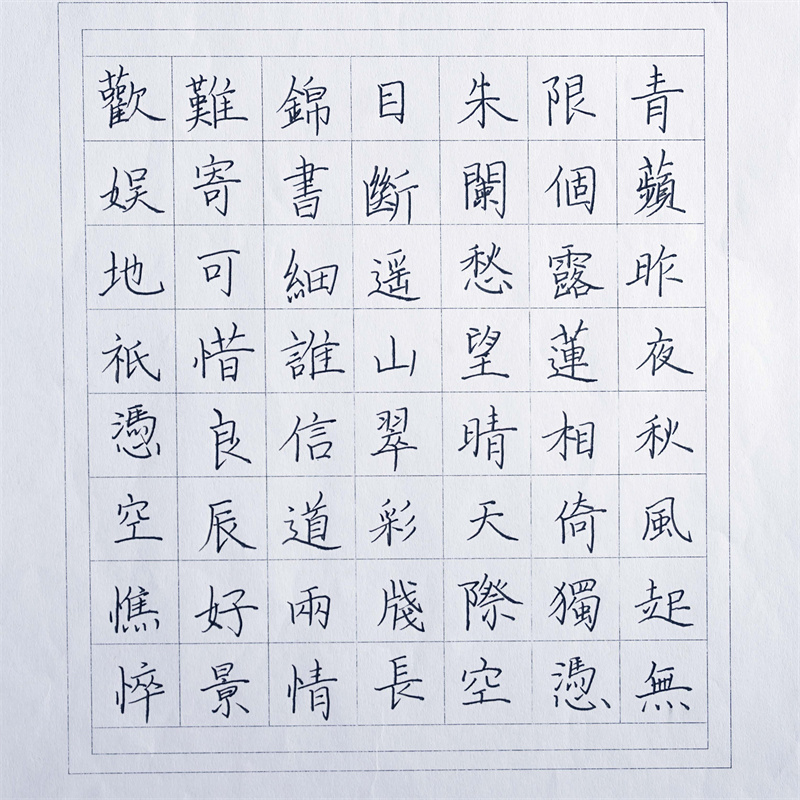 青蘋昨夜秋風起無
限個露蓮相倚獨憑
朱闌愁望晴天際空
目斷遥山翠彩牋長
錦書細誰信道兩情
難寄可惜良辰好景
歡娱地衹憑空憔悴